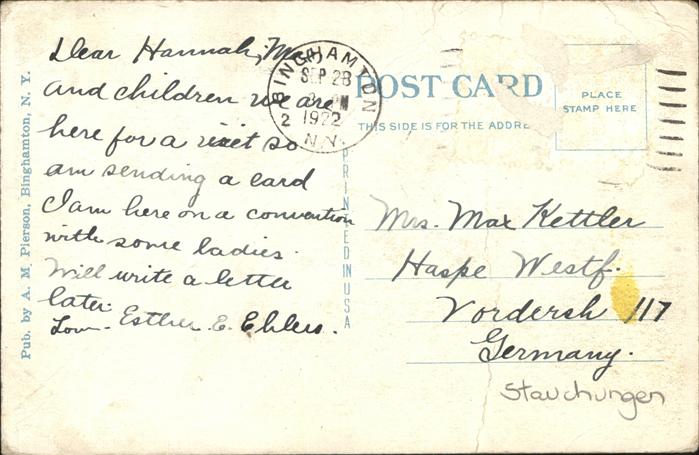 Dear Hannah, Max
and children we are
here for a visit so
am sending a card
I am here on a convention
with some ladies.
Will write a letter
later.
Esther E. Ehlers.
BINGHAMTON
SEP 28
PM
1922
N.Y.
2
POST CARD
THIS SIDE IS FOR THE ADDRE
PLACE
STAMP HERE
Mrs. Max Kettler
Haspe Westf.
Vordersh 117
Germany.
Stauchungen
PRINTED IN USA
Pub. by A. M. Pierson, Binghamton, N. Y.